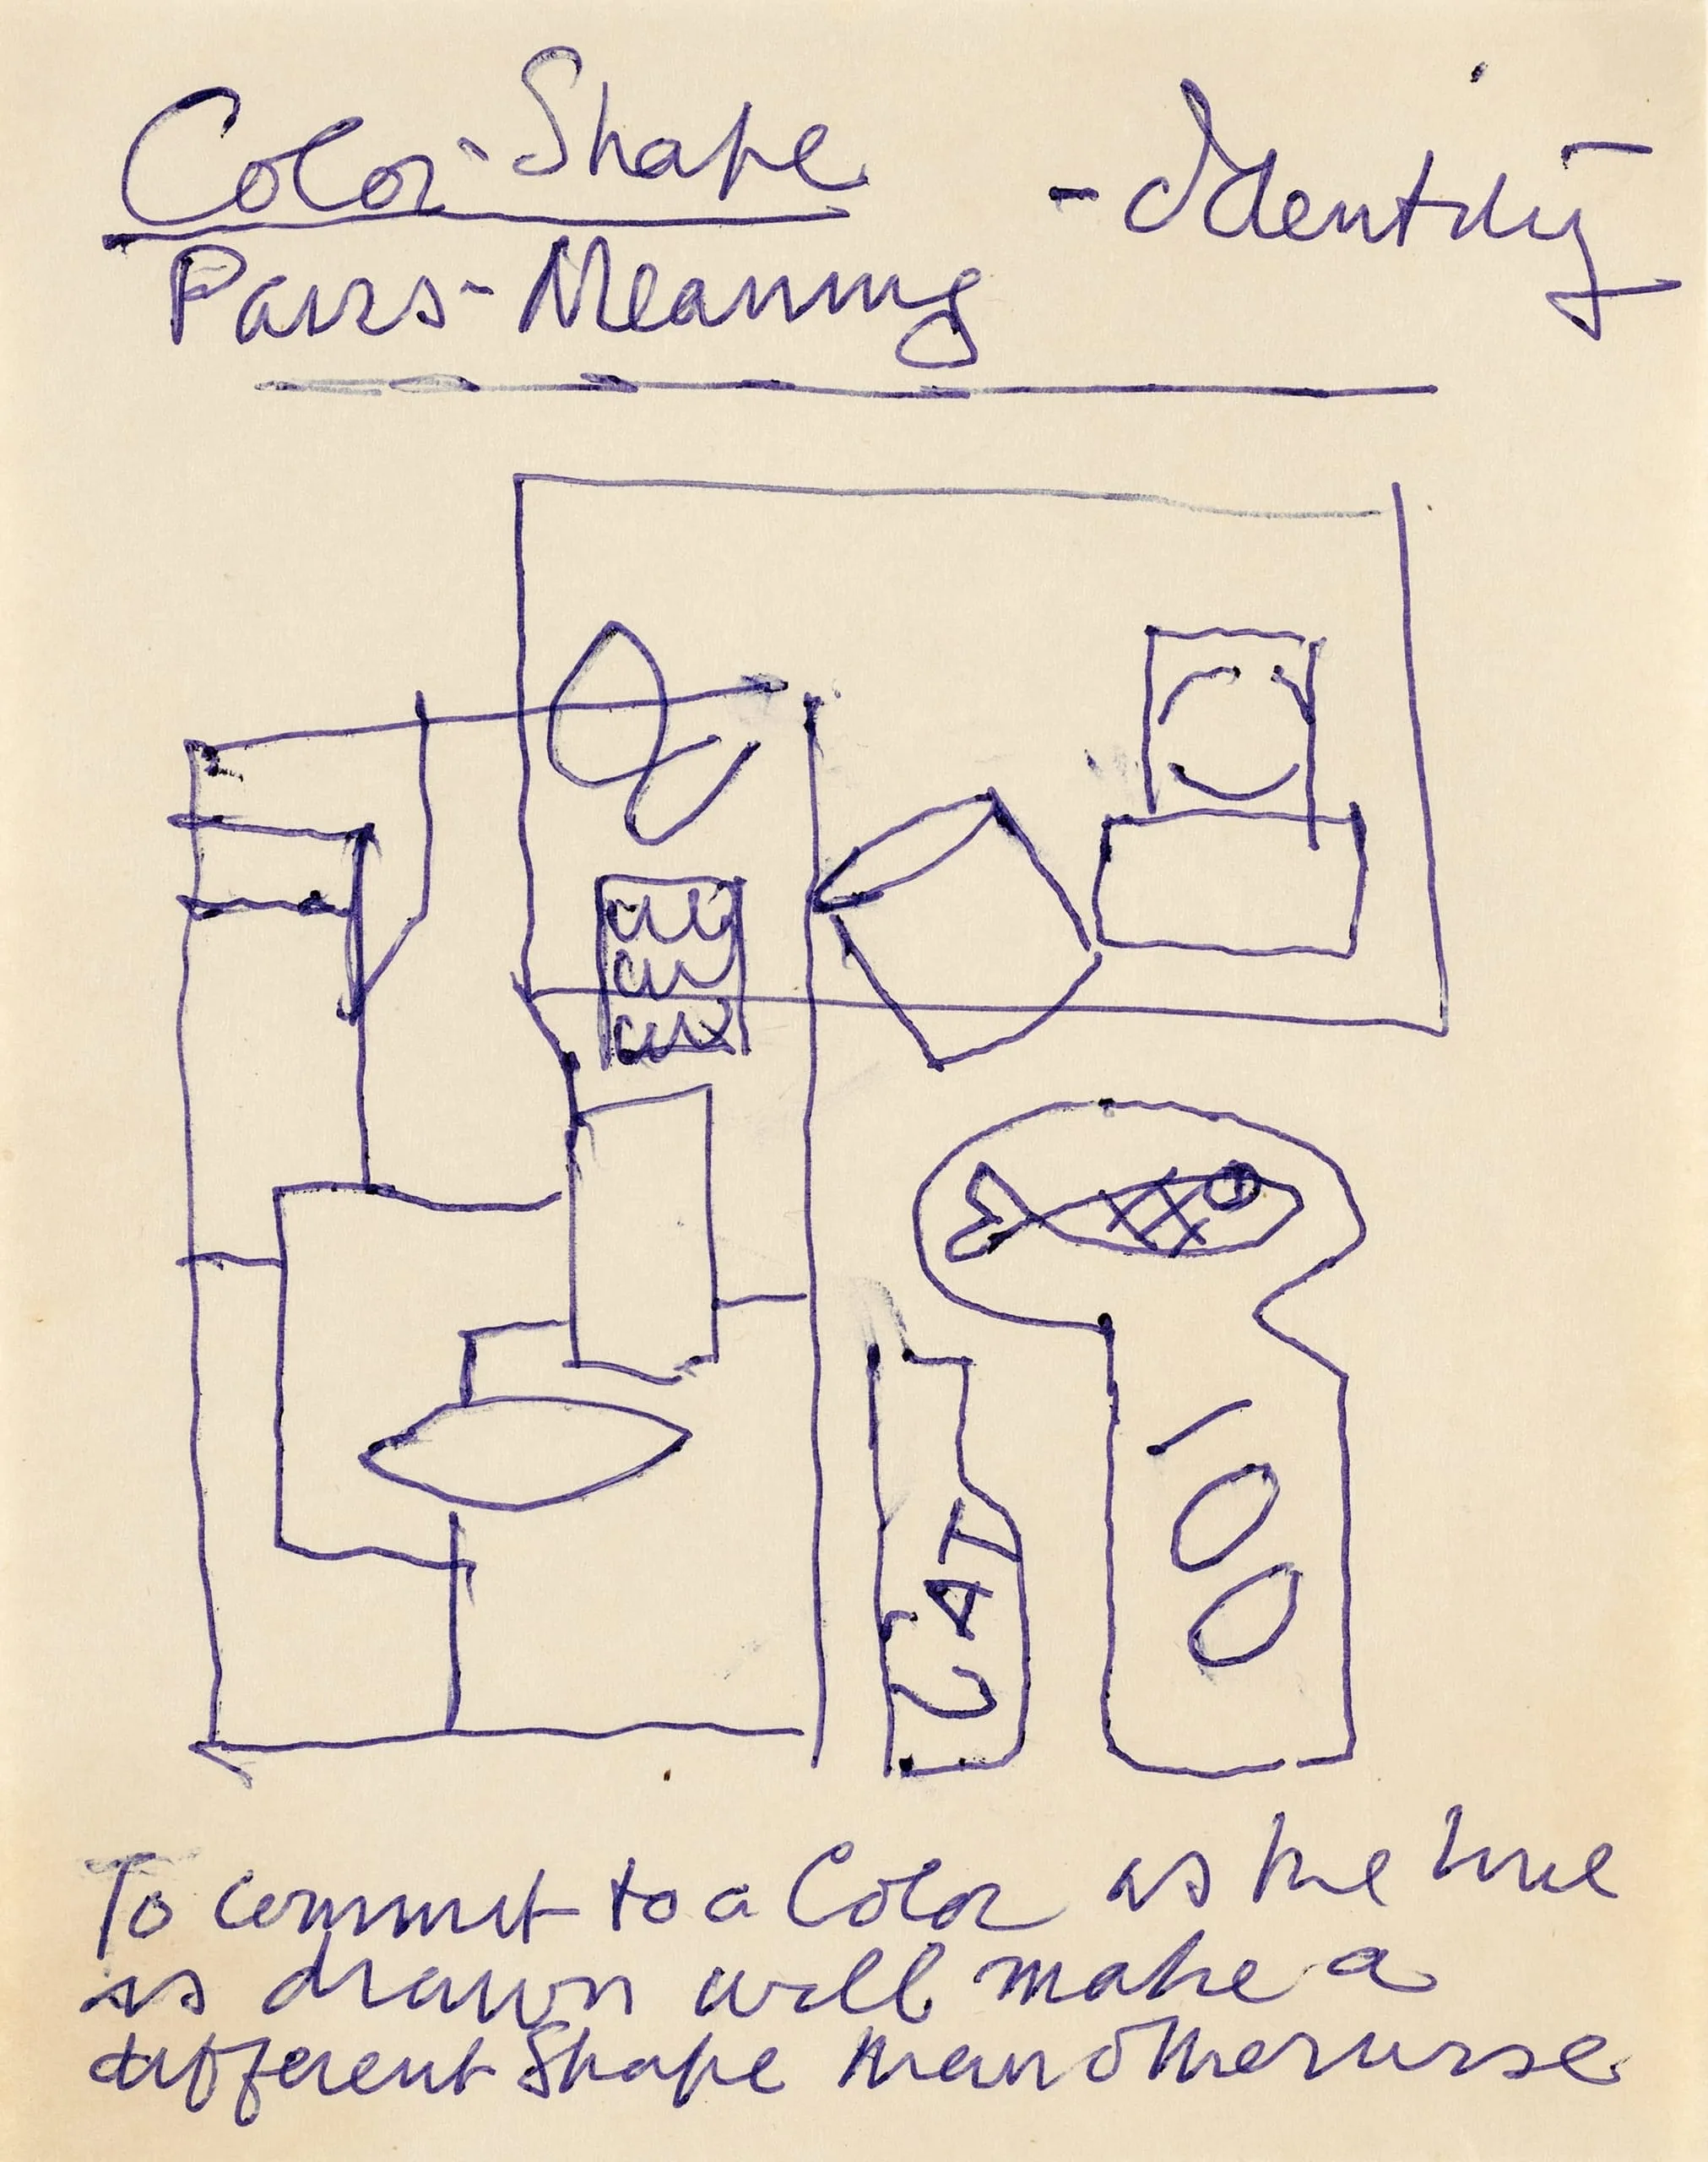 Color-Shape
- Identity
Pairs-Meaning
CAT
100
To commit to a Color as the line
is drawn will make a
different Shape than otherwise